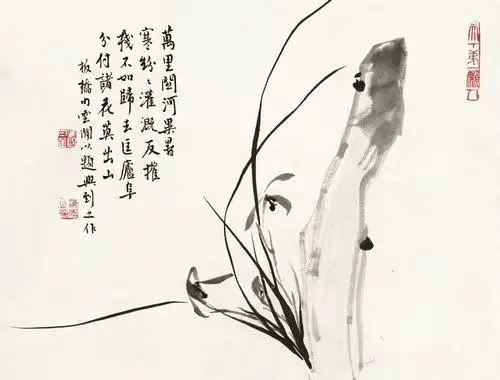 萬里関河異暑
寒紛々灌溉反摧
殘不如歸去匡廬阜
分付諸花莫出山
板橋句雲閒以題興到之作